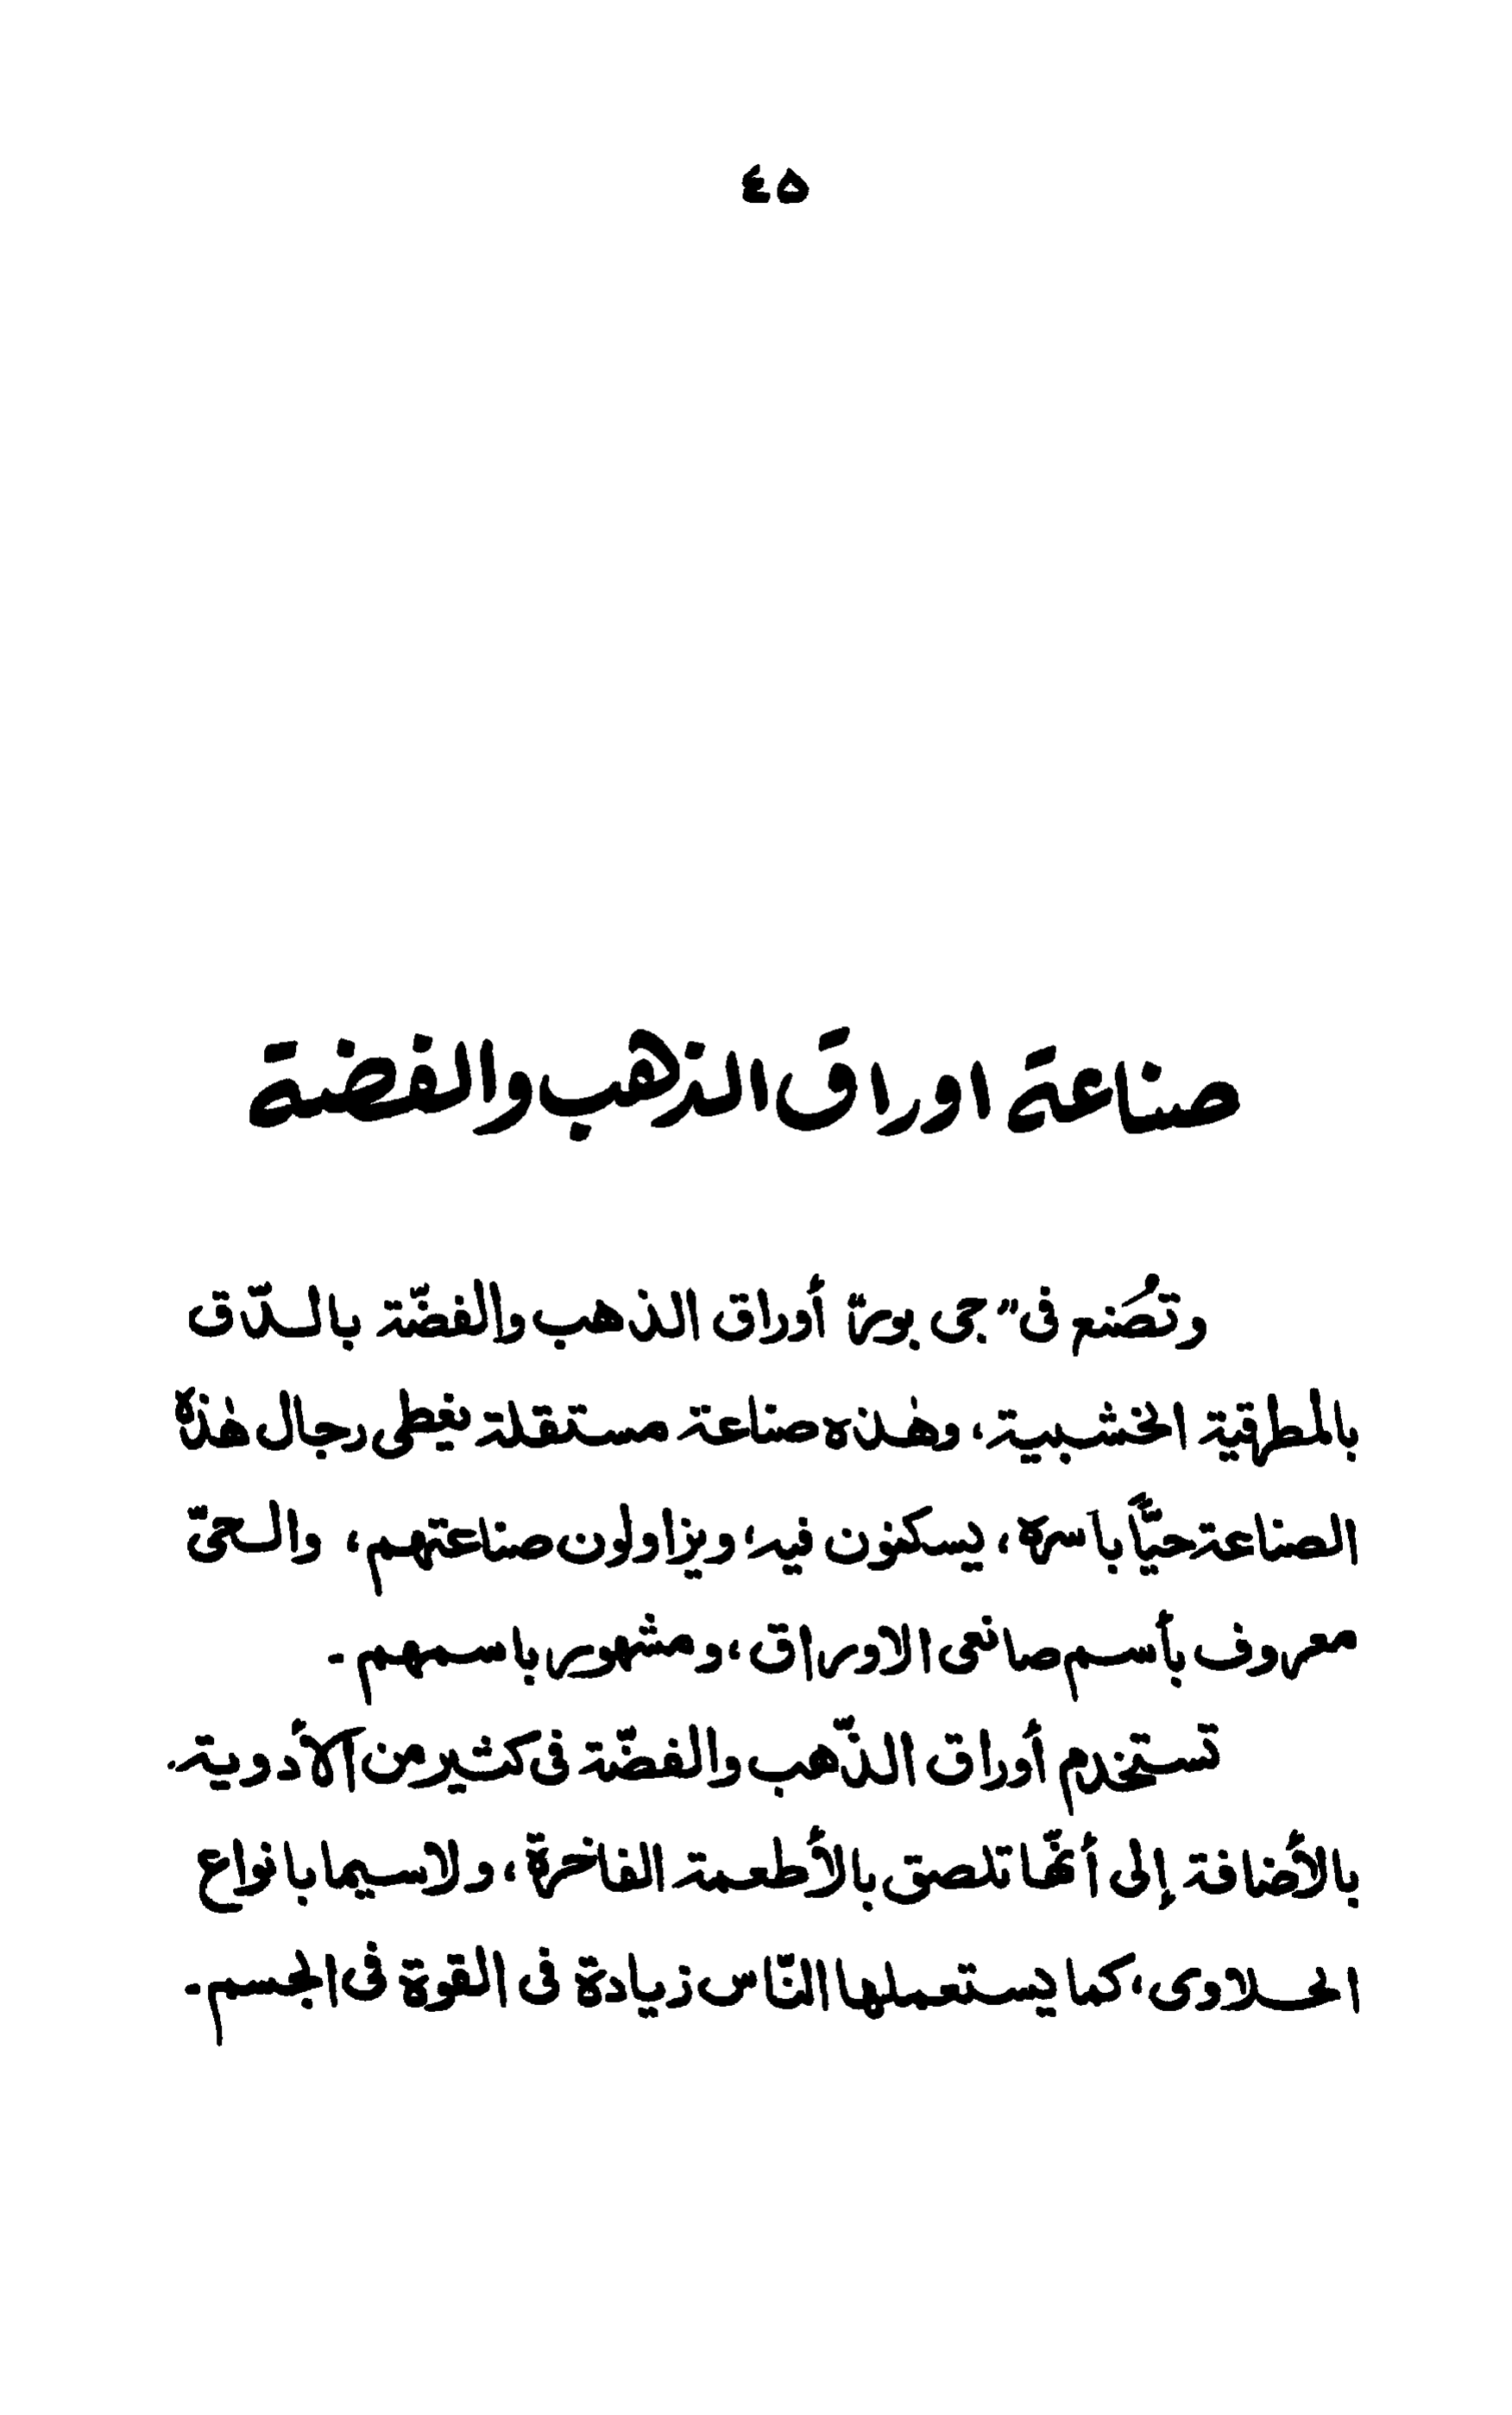 ٤٥
صناعة اوراق الذهب والفضة
وتصُنع فى "جى بور" أوراق الذهب والفضّة بالدّق
بالمطرقية الخشبية، وهٰذه صناعة مستقلة يغطى رجال هٰذه
الصناعة حيّاً بأسره، يسكنون فيه، ويزاولون صناعتهم، والحىّ
معروف بأسم صانعى الاوراق، ومشهور باسمهم -
تستخدم أوراق الذّهب والفضّة فى كثير من الأدوية.
بالأضافة إلى أنّها تلصق بالأطعمة الفاخرة، ولاسيما بانواع
الحلاوى، كما يستعملها النّاس زيادة فى القوة فى الجسم -